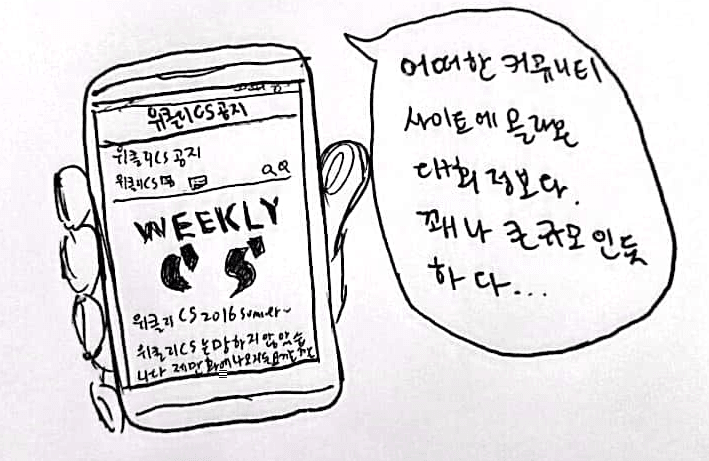 위클리CS공지
위클리CS 공지
위클리CS
WEEKLY
CS
위클리 CS 2016 summer~
위클리CS는 망하지 않았습
니다 제 만화에 나오지는
어떠한 커뮤니티
사이트에 올라온
대회 정보다.
꽤나 큰 규모인듯
하다...